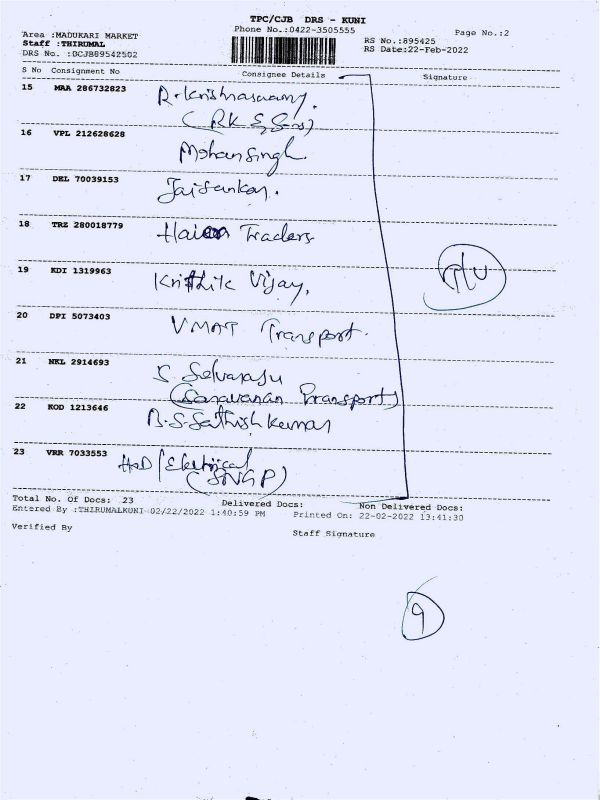 TPC/CJB DRS - KUNI
Phone No.:0422-3505555
Page No.:2
Area :MADUKARI MARKET
Staff :THIRUMAL
DRS No. :BCJB89542502
RS No.:895425
RS Date:22-Feb-2022
S No Consignment No Consignee Details Signature
15 MAA 286732823 R. Krishnasamy.
(RK & Sons)
16 VPL 212628628 Mohansingh.
17 DEL 70039153 Jaisankar.
18 TRZ 280018779 Traders
19 KDI 1319963 Krithik Vijay.
20 DPI 5073403 VMAT Transport.
21 NKL 2914693 S. Selvaraju
(Saravanan Transport)
22 KOD 1213646 B.S. Sathish Kumar
23 VRR 7033553 HOD/Electrical
(SNGP)
Total No. Of Docs: 23 Delivered Docs: Non Delivered Docs:
Entered By :THIRUMALKUNI 02/22/2022 1:40:59 PM Printed On: 22-02-2022 13:41:30
Verified By Staff Signature
9